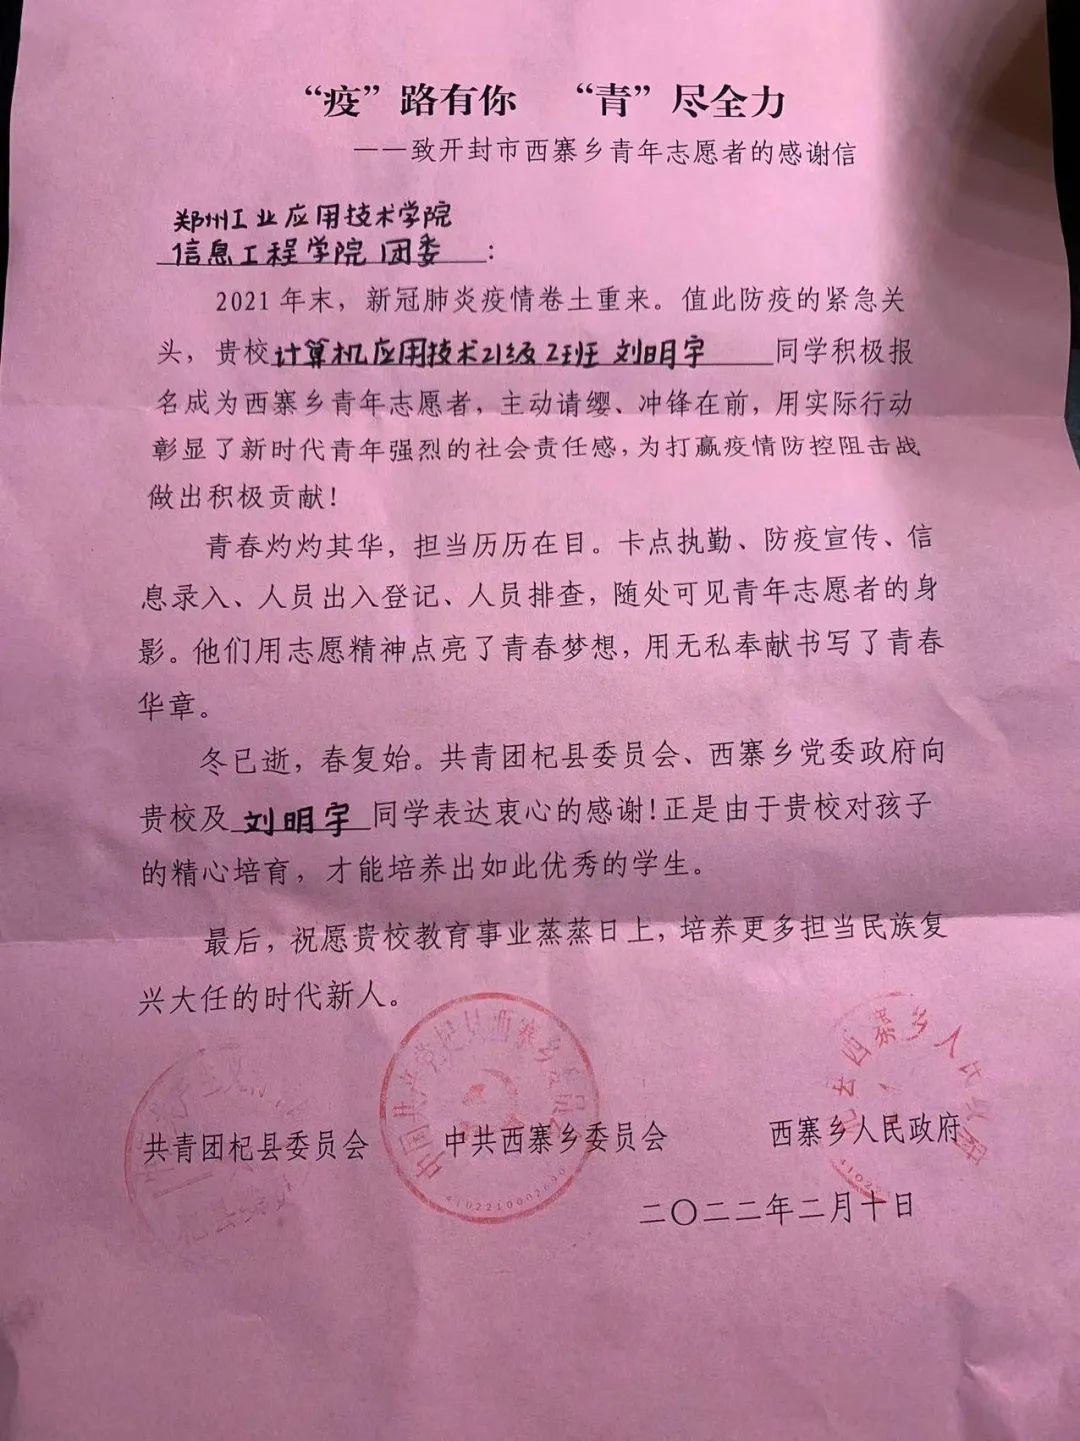 “疫”路有你 “青”尽全力
——致开封市西寨乡青年志愿者的感谢信
郑州工业应用技术学院
信息工程学院团委：
2021年末，新冠肺炎疫情卷土重来。值此防疫的紧急关
头，贵校计算机应用技术21级2班刘明宇同学积极报
名成为西寨乡青年志愿者，主动请缨、冲锋在前，用实际行动
彰显了新时代青年强烈的社会责任感，为打赢疫情防控阻击战
做出积极贡献！
青春灼灼其华，担当历历在目。卡点执勤、防疫宣传、信
息录入、人员出入登记、人员排查，随处可见青年志愿者的身
影。他们用志愿精神点亮了青春梦想，用无私奉献书写了青春
华章。
冬已逝，春复始。共青团杞县委员会、西寨乡党委政府向
贵校及刘明宇同学表达衷心的感谢！正是由于贵校对孩子
的精心培育，才能培养出如此优秀的学生。
最后，祝愿贵校教育事业蒸蒸日上，培养更多担当民族复
兴大任的时代新人。
中国共产党杞县西寨乡委员会
西寨乡人民
共青团杞县委员会 中共西寨乡委员会 西寨乡人民政府
二〇二二年二月十日